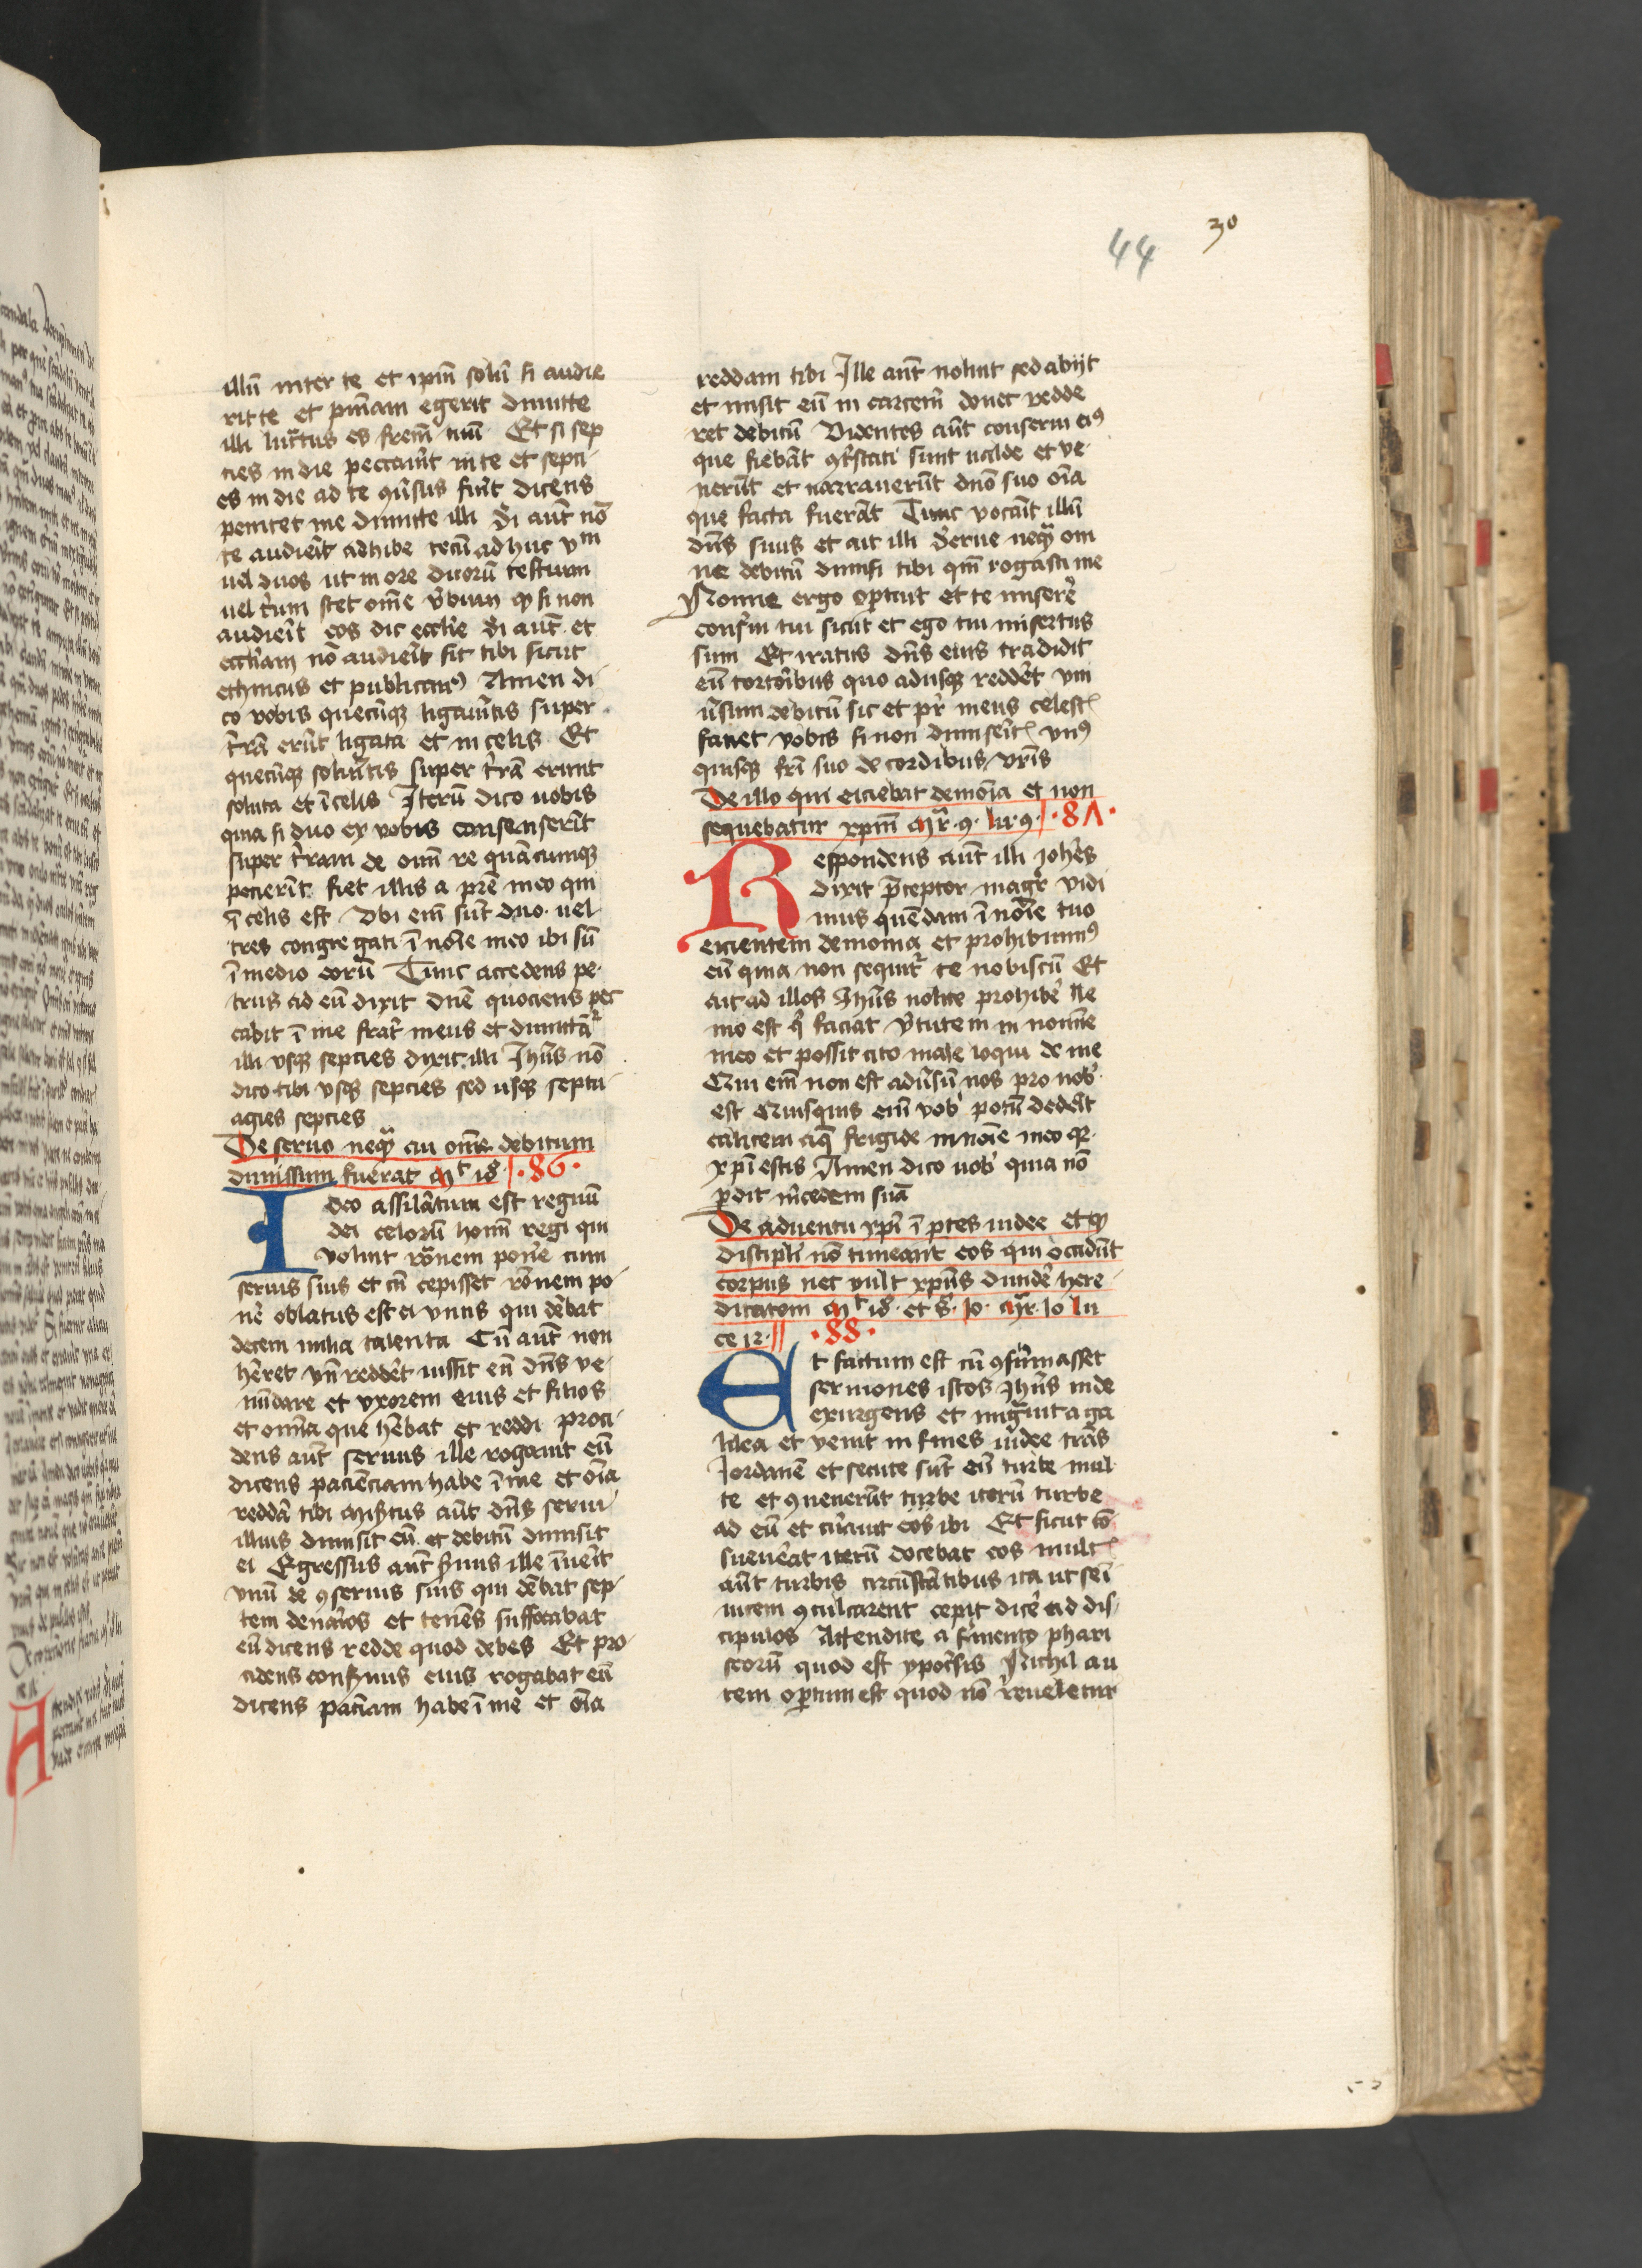 30
44
illū inter te et ipm̄ solū si audie
rit te et pn̄iam egerit dimitte
illi lucratus es frem̄ tuū Et si sep
cies in die peccaūit in te et septi
es in die ad te cōūsus fūit dicens
penitet me dimitte illi Si aut̄ nō
te audierit adhibe tecū ad huc vm̄
uel duos ut in ore duorū testium
uel trium stet om̄e ūbum qꝫ si non
audierit eos dic ecclīe Si aut̄ et
ecclīam nō audierit sit tibi sicut
ethnicus et publicanꝰ Amen di
co vobis quecūqꝫ ligaūitis super
trrā erūt ligata et in celis Et
quecūqꝫ soluītis super trrā erunt
soluta et ī celis Iterū dico uobis
quia si duo ex vobis consenserīt
super trram de omī re quācumqꝫ
pecierīt fiet illis a prē meo qui
ī celis est Vbi em̄ sūt duo uel
tres congregati ī noīe meo ibi sū
ī medio eorū Tunc accedens pe
trus ad eū dixit dn̄e quociens pec
cabit ī me frat̄ meus et dimittā
illi vsqꝫ sepcies dixit illi Ihūs nō
dico tibi vsqꝫ sepcies sed usqꝫ septu
agies sepcies
De seruo neqꝫ cui om̄e debitum
dimissum fuerat mt 18 · 86 ·
Ideo assilātum est regnū
dei celorū homī regi qui
voluit rōnem pone᷑ cum
seruis suis et cū cepisset rōnem po
ne᷑ oblatus est ei vnus qui dēbat
decem milia talenta Cū aut̄ non
hēret vn̄ reddēt iussit eū dn̄s ve
nūdare et vxorem eius et filios
et omīa que hēbat et reddi proci
dens aut̄ seruus ille rogauit eū
dicens pacienciam habe ī me et oīa
reddā tibi Misertus aut̄ dn̄s serui
illius dimisit eū et debitū dimisit
ei Egressus aut̄ s̄uus ille īueīt
vnū de ꝯseruis suis qui dēbat sep
tem denarios et tenēs suffocabat
eū dicens redde quod debes Et pro
cidens cons̄uus eius rogabat eū
dicens pacīam habe ī me et oīa
reddam tibi Ille aut̄ noluit sed abijt
et misit eū in carcerē donec redde
ret debitū Videntes aut̄ conserui eiꝰ
que fiebāt ꝯt̄stati sunt ualde et ve
nerūt et narrauerūt dn̄o suo oīa
que facta fuerāt Tunc vocaūit illū
dn̄s suus et ait illi Serue neqꝫ om
ne debitū dimisi tibi qm̄ rogasti me
Nonne ergo oportuit et te misere᷑
conserui tui sicut et ego tui misertus
sum Et iratus dn̄s eius tradidit
eū tortoribus quo adusqꝫ reddēt vni
ūsum debitū sic et pr̄ meus celest
faciet vobis si non dimiserit vnꝰ
quisqꝫ frī suo de cordibus vrīs
De illo qui eiciebat demoīa et non
sequebatur xp̄m Mr̄ 9 lu 9 · 87 ·
Respondens aut̄ illi Johēs
dixit p̄ceptor magr̄ vidi
mus quēdam ī noīe tuo
eicientem demonia et prohibuimꝰ
eū quia non sequit᷑ te nobiscū Et
ait ad illos Ihūs nolite prohibe᷑ Ne
mo est qͥ faciat v̄tutem in nomīe
meo et possit cito male loqui de me
Qui em̄ non est adūsū nos pro nob᷑
est Quisquis em̄ vob᷑ potū dedēit
calicem aq̄ frigide in noīe meo qꝛ
xp̄i estis Amen dico uob᷑ quia nō
p̄dit m̄cedem suā
De aduentu xp̄i ī p̄tes iudee et qꝫ
discipl̄i nō timeant eos qui occidūt
corpus nec vult xp̄us diuide᷑ here
ditatem Mt 18 et 8 Io Mr̄ 10 lu
ce 12 · 88 ·
Et factum est cū ꝯsūmasset
sermones istos Ihūs inde
exurgens et migrauit a ga
lilea et venit in fines iudee trās
Iordanē et secute sūt eū turbe mul
te et ꝯuenerūt turbe iterū turbe
ad eū et curauit eos ibi Et sicut cō
sueuerat iterū docebat eos mult
aut̄ turbis circūstātibus ita ut se ī
uicem ꝯculcarent cepit dice᷑ ad dis
cipulos Attendite a f̄mento phari
seorū quod est ypocrisis Nichil au
tem op̄tum est quod nō reueletur